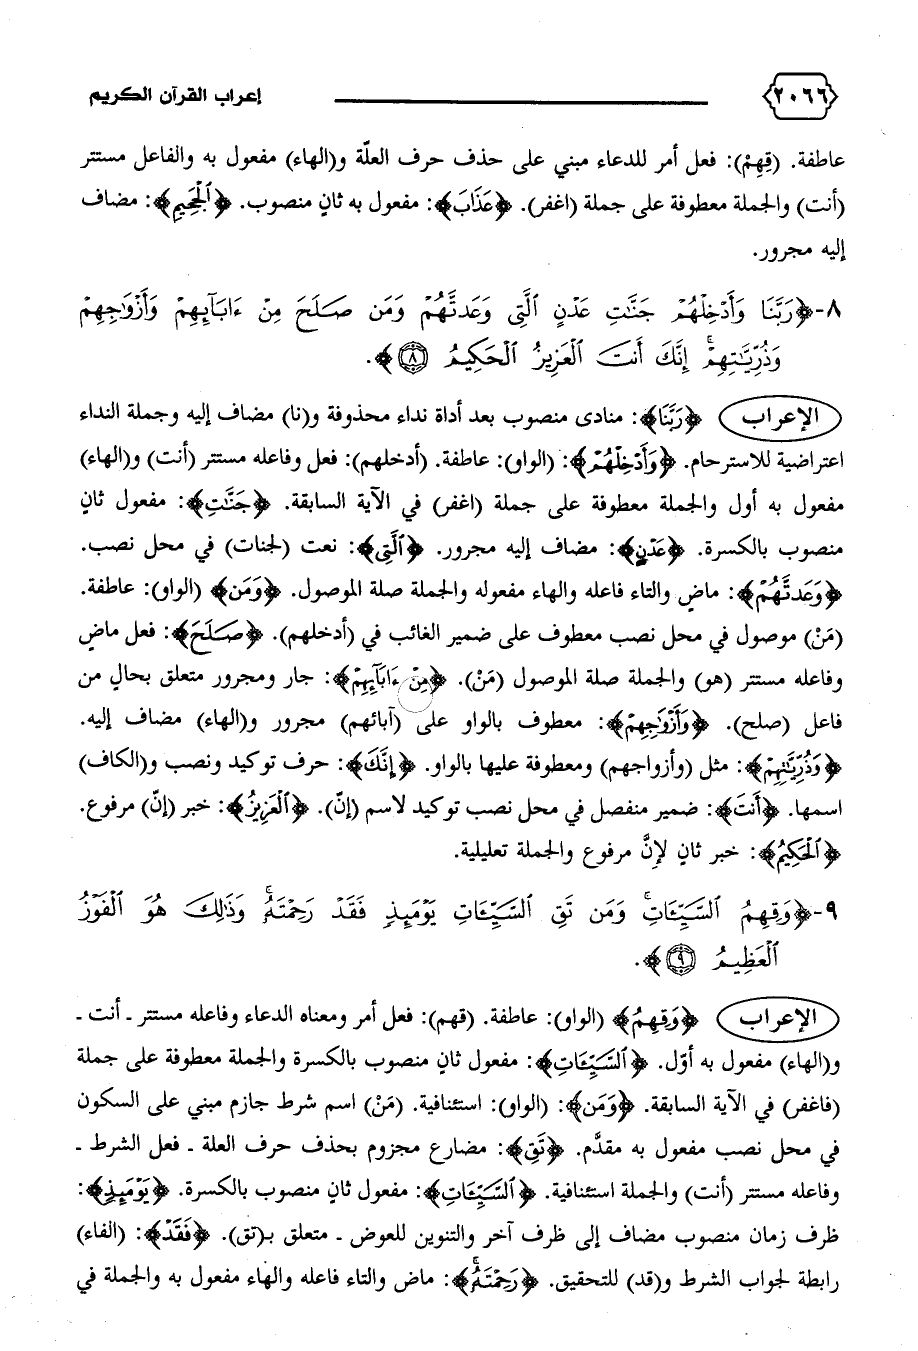 ٢٠٦٦ إعراب القرآن الكريم
عاطفة. (قِهِمْ): فعل أمر للدعاء مبني على حذف حرف العلة و(الهاء) مفعول به والفاعل مستتر
(أنت) والجملة معطوفة على جملة (اغفر). ﴿عَذَابَ﴾: مفعول به ثانٍ منصوب. ﴿ٱلْجَحِيمِ﴾: مضاف
إليه مجرور.
٨-﴿رَبَّنَا وَأَدْخِلْهُمْ جَنَّٰتِ عَدْنٍ ٱلَّتِى وَعَدتَّهُمْ وَمَن صَلَحَ مِنْ ءَابَآئِهِمْ وَأَزْوَٰجِهِمْ
وَذُرِّيَّٰتِهِمْ ۚ إِنَّكَ أَنتَ ٱلْعَزِيزُ ٱلْحَكِيمُ ٨﴾.
الإعراب ﴿رَبَّنَا﴾: منادى منصوب بعد أداة نداء محذوفة و(نا) مضاف إليه وجملة النداء
اعتراضية للاسترحام. ﴿وَأَدْخِلْهُمْ﴾: (الواو): عاطفة. (أدخلهم): فعل وفاعله مستتر (أنت) و(الهاء)
مفعول به أول والجملة معطوفة على جملة (اغفر) في الآية السابقة. ﴿جَنَّٰتِ﴾: مفعول ثانٍ
منصوب بالكسرة. ﴿عَدْنٍ﴾: مضاف إليه مجرور. ﴿ٱلَّتِى﴾: نعت (لجنات) في محل نصب.
﴿وَعَدتَّهُمْ﴾: ماضٍ والتاء فاعله والهاء مفعوله والجملة صلة الموصول. ﴿وَمَن﴾ (الواو): عاطفة.
(مَنْ) موصول في محل نصب معطوف على ضمير الغائب في (أدخلهم). ﴿صَلَحَ﴾: فعل ماضٍ
وفاعله مستتر (هو) والجملة صلة الموصول (مَنْ). ﴿مِنْ ءَابَآئِهِمْ﴾: جار ومجرور متعلق بحال من
فاعل (صلح). ﴿وَأَزْوَٰجِهِمْ﴾: معطوف بالواو على (آبائهم) مجرور و(الهاء) مضاف إليه.
﴿وَذُرِّيَّٰتِهِمْ﴾: مثل (وأزواجهم) ومعطوفة عليها بالواو. ﴿إِنَّكَ﴾: حرف توكيد ونصب و(الكاف)
اسمها. ﴿أَنتَ﴾: ضمير منفصل في محل نصب توكيد لاسم (إنّ). ﴿ٱلْعَزِيزُ﴾: خبر (إنّ) مرفوع.
﴿ٱلْحَكِيمُ﴾: خبر ثانٍ لإنَّ مرفوع والجملة تعليلية.
٩-﴿وَقِهِمُ ٱلسَّيِّـَٔاتِ ۚ وَمَن تَقِ ٱلسَّيِّـَٔاتِ يَوْمَئِذٍ فَقَدْ رَحِمْتَهُۥ ۚ وَذَٰلِكَ هُوَ ٱلْفَوْزُ
ٱلْعَظِيمُ ٩﴾.
الإعراب ﴿وَقِهِمُ﴾ (الواو): عاطفة. (قهم): فعل أمر ومعناه الدعاء وفاعله مستتر ـ أنت ـ
و(الهاء) مفعول به أوّل. ﴿ٱلسَّيِّـَٔاتِ﴾: مفعول ثانٍ منصوب بالكسرة والجملة معطوفة على جملة
(فاغفر) في الآية السابقة. ﴿وَمَن﴾: (الواو): استئنافية. (مَنْ) اسم شرط جازم مبني على السكون
في محل نصب مفعول به مقدَّم. ﴿تَقِ﴾: مضارع مجزوم بحذف حرف العلة ـ فعل الشرط ـ
وفاعله مستتر (أنت) والجملة استئنافية. ﴿ٱلسَّيِّـَٔاتِ﴾: مفعول ثانٍ منصوب بالكسرة. ﴿يَوْمَئِذٍ﴾:
ظرف زمان منصوب مضاف إلى ظرف آخر والتنوين للعوض ـ متعلق بـ(تق). ﴿فَقَدْ﴾: (الفاء)
رابطة لجواب الشرط و(قد) للتحقيق. ﴿رَحِمْتَهُۥ ۚ﴾: ماض والتاء فاعله والهاء مفعول به والجملة في